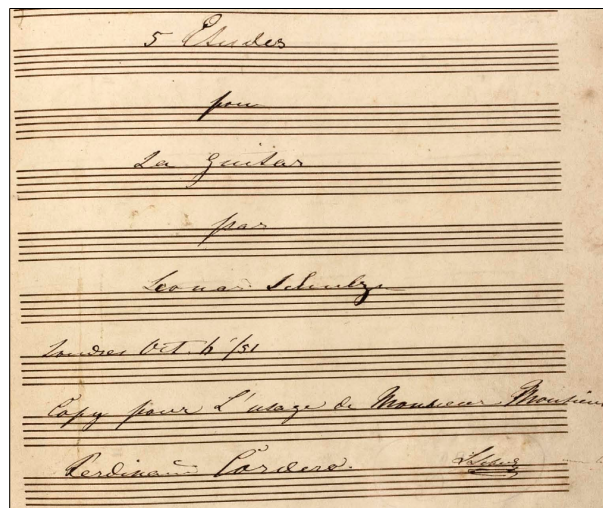 5 Etudes
pour
La guitar
par
Leonard Schulz
Londres Oct. 4/51
Copy pour L'usage de Monsieur Monsieur
Ferdinand Cordero.